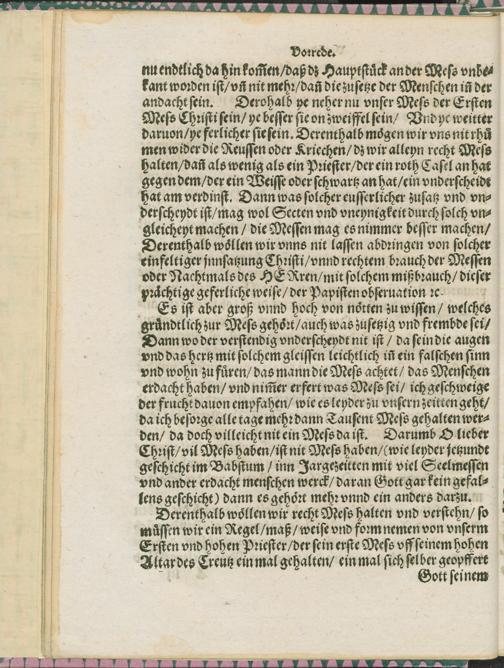 Vorrede.
nu endtlich da hin kom̃en/daß dz Hauptstück an der Mess vnbe-
kant worden ist/vñ nit mehr/dañ die zusetze der Menschen iñ der
andacht sein. Derohalb ye neher nu vnser Mess der Ersten
Mess Christi sein/ ye besser sie on zweiffel sein/ Vnd ye weitter
daruon/ye ferlicher sie sein. Derenthalb mögen wir vns nit rhü
men wider die Reussen oder Kriechen/dz wir alleyn recht Mess
halten/dañ als wenig als ein Priester/der ein roth Casel an hat
gegen dem/der ein Weisse oder schwartz an hat/ein vnderscheidt
hat am verdinst. Dann was solcher eusserlicher zusatz vnd vn-
derscheydt ist/mag wol Secten vnd vneynigkeit durch solch vn-
gleicheyt machen/ die Messen mag es nimmer besser machen/
Derenthalb wöllen wir vnns nit lassen abdringen von solcher
einfeltiger jnnsatzung Christi/vnnd rechtem brauch der Messen
oder Nachtmals des HERren/mit solchem mißbrauch/dieser
prächtige geferliche weise/der Papisten obseruation ꝛc.
Es ist aber groß vnnd hoch von nötten zu wissen/ welches
gründtlich zur Mess gehört/auch was zusetzig vnd frembde sei/
Dann wo der verstendig vnderscheydt nit ist/ da sein die augen
vnd das hertz mit solchem gleissen leichtlich iñ ein falschen sinn
vnd wohn zu füren/das mann die Mess achtet/das Menschen
erdacht haben/vnd nim̃er erfert was Mess sei/ ich geschweige
der frucht dauon empfahen/ wie es leyder zu vnsern zeitten geht/
da ich besorge alle tage mehr dann Tausent Mess gehalten wer-
den/ da doch villeicht nit ein Mess da ist. Darumb O lieber
Christ/vil Mess haben/ist nit Mess haben/(wie leyder jetzundt
geschicht im Babstum/ inn Jargezeitten mit viel Seelmessen
vnd ander erdacht menschen werck/daran Gott gar kein gefal-
lens geschicht) dann es gehört mehr vnnd ein anders darzu.
Derenthalb wöllen wir recht Mess halten vnd verstehn/ so
müssen wir ein Regel/maß/weise vnd form nemen von vnserm
Ersten vnd hohen Priester/der sein erste Mess vff seinem hohen
Altar des Creutz ein mal gehalten/ ein mal sich selber geopffert
Gott seinem